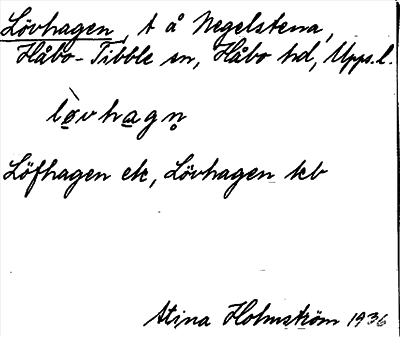 Lövhagen, t å Negelstena,
Håbo-Tibble sn, Håbo hd, Upps.l.
lø̀vhagn̥
Löfhagen ek, Lövhagen kb
Stina Holmström 1936